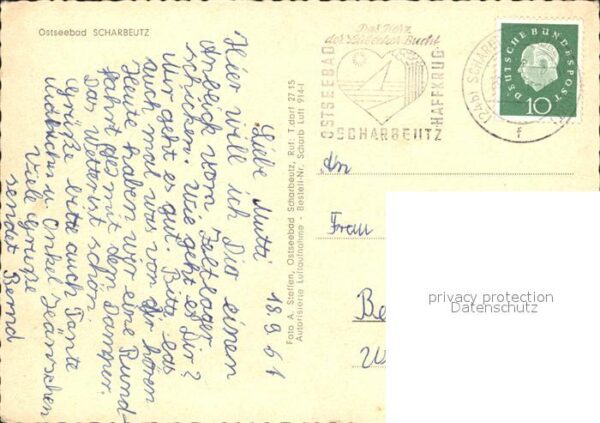 Ostseebad SCHARBEUTZ
18.9.61
Liebe Mutti
Hier will ich Dir einen
Anblick vom Zeltlager
schicken. Wie geht es Dir?
Mir geht es gut. Bitte laß
auch mal was von dir hören
Heute haben wir eine Rund-
fahrt mit dem Dampfer.
Das Wetter ist schön
Grüße bitte auch Tante
u. Onkel
Viele Grüße
sendet Bernd
Foto A. Steffen, Ostseebad Scharbeutz, Ruf: T.dorf 27 15
Autorisierte Luftaufnahme - Bestell-Nr. Scharb Luft 914-I
Das Herz
der Lübecker Bucht
OSTSEEBAD
HAFFKRUG
SCHARBEUTZ
(24b) SCHARB
f
DEUTSCHE BUNDESPOST
10
An
Frau
Be
privacy protection
Datenschutz